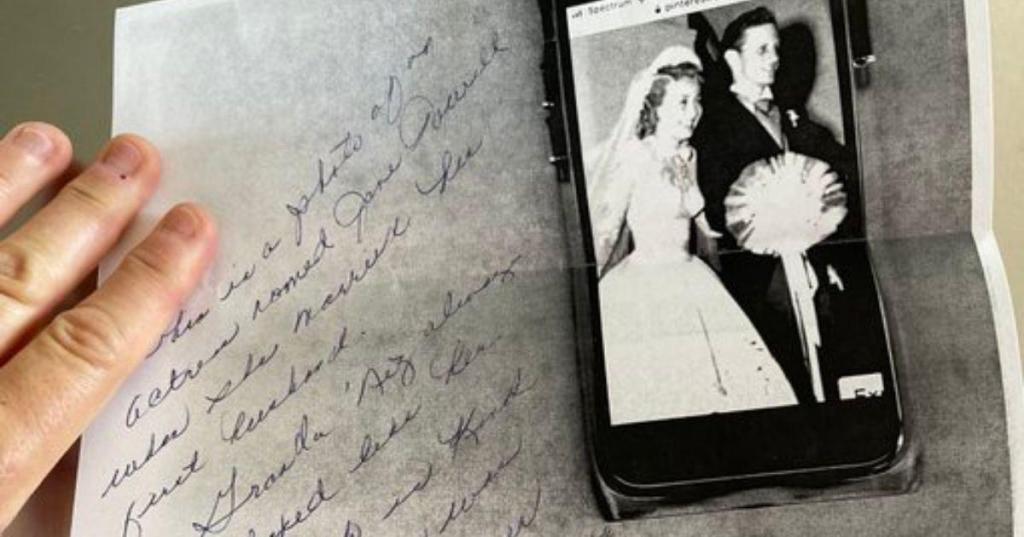 This is a photo of an
actress named Jane Powell
when she married her
first husband.
Granda always
like her.
is Kind
Spectrum
pinteres
Ex